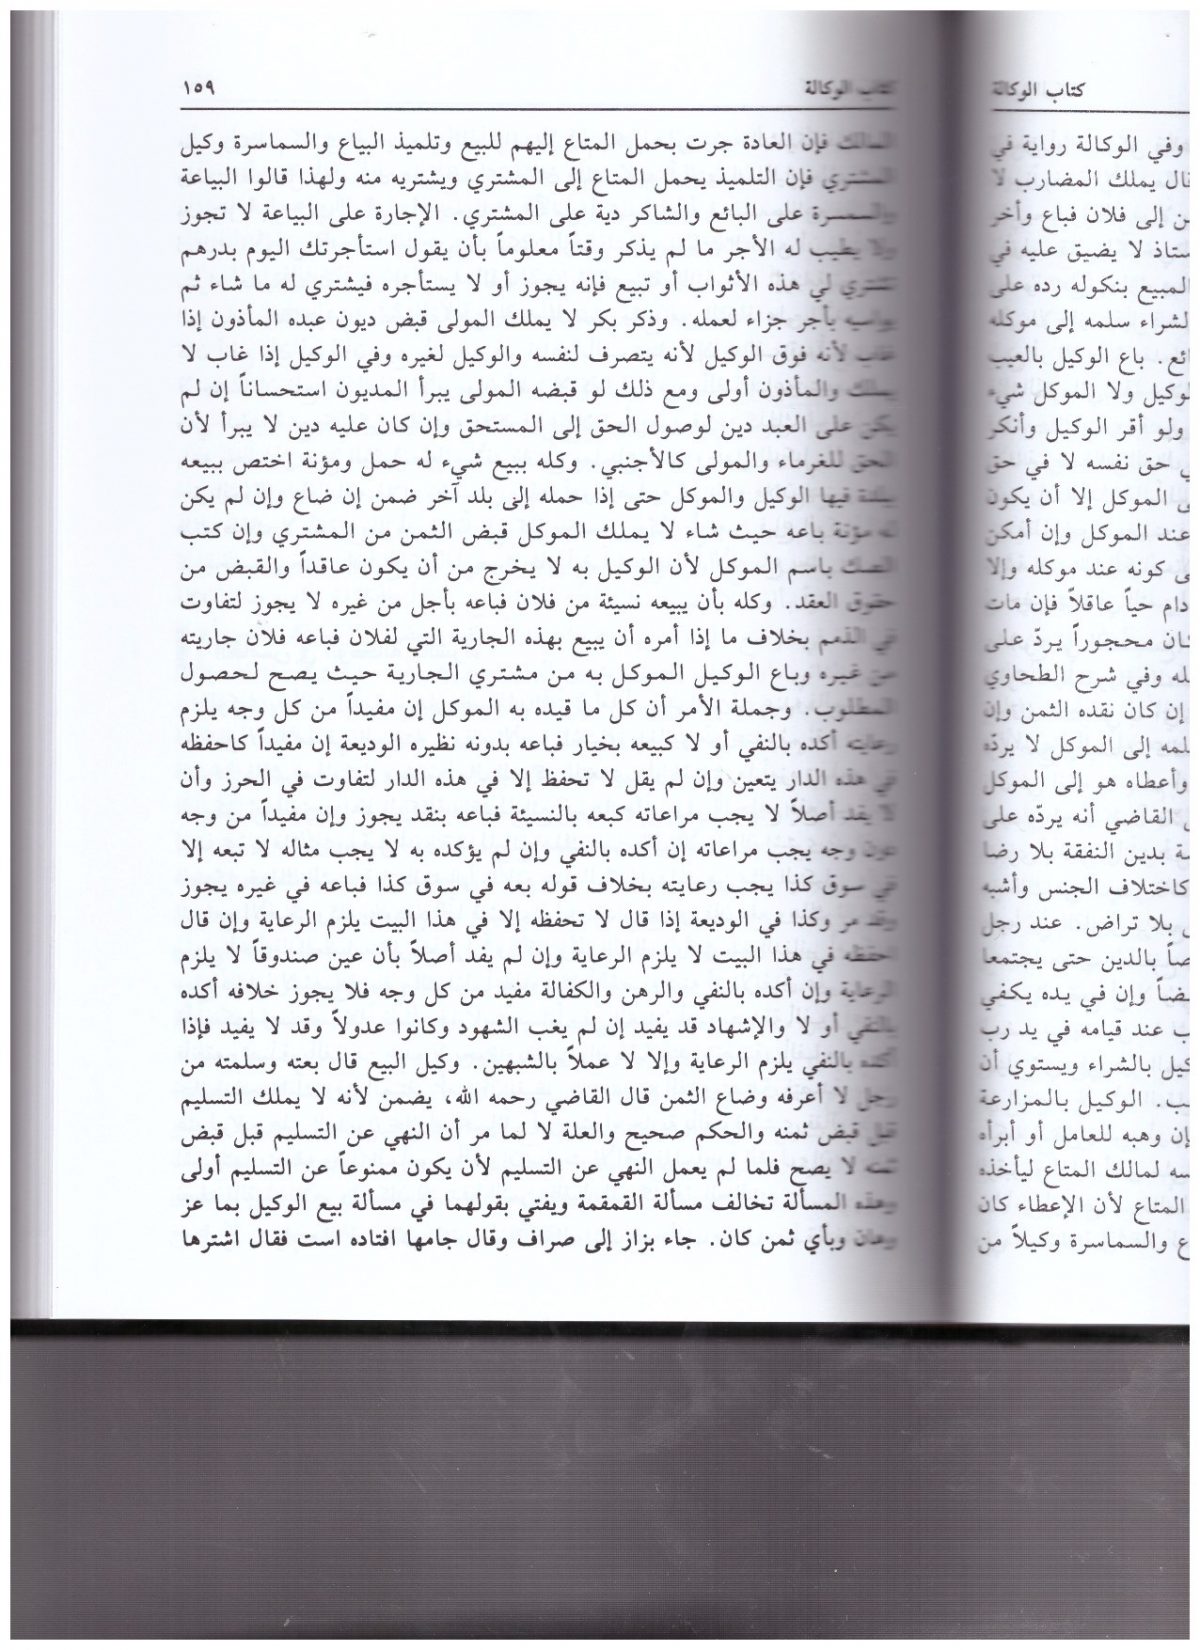 كتاب الوكالة ١٥٩
المالك فإن العادة جرت بحمل المتاع إليهم للبيع وتلميذ البياع والسماسرة وكيل
المشتري فإن التلميذ يحمل المتاع إلى المشتري ويشتريه منه ولهذا قالوا البياعة
والسمسرة على البائع والشاكر دية على المشتري. الإجارة على البياعة لا تجوز
ولا يطيب له الأجر ما لم يذكر وقتاً معلوماً بأن يقول استأجرتك اليوم بدرهم
تشتري لي هذه الأثواب أو تبيع فإنه يجوز أو لا يستأجره فيشتري له ما شاء ثم
يواسيه بأجر جزاء لعمله. وذكر بكر لا يملك المولى قبض ديون عبده المأذون إذا
غاب لأنه فوق الوكيل لأنه يتصرف لنفسه والوكيل لغيره وفي الوكيل إذا غاب لا
يملك والمأذون أولى ومع ذلك لو قبضه المولى يبرأ المديون استحساناً إن لم
يكن على العبد دين لوصول الحق إلى المستحق وإن كان عليه دين لا يبرأ لأن
الحق للغرماء والمولى كالأجنبي. وكله ببيع شيء له حمل ومؤنة اختص ببيعه
ببلدة فيها الوكيل والموكل حتى إذا حمله إلى بلد آخر ضمن إن ضاع وإن لم يكن
له مؤنة باعه حيث شاء لا يملك الموكل قبض الثمن من المشتري وإن كتب
الصك باسم الموكل لأن الوكيل به لا يخرج من أن يكون عاقداً والقبض من
حقوق العقد. وكله بأن يبيعه نسيئة من فلان فباعه بأجل من غيره لا يجوز لتفاوت
في الذمم بخلاف ما إذا أمره أن يبيع بهذه الجارية التي لفلان فباعه فلان جاريته
من غيره وباع الوكيل الموكل به من مشتري الجارية حيث يصح لحصول
المطلوب. وجملة الأمر أن كل ما قيده به الموكل إن مفيداً من كل وجه يلزم
رعايته أكده بالنفي أو لا كبيعه بخيار فباعه بدونه نظيره الوديعة إن مفيداً كاحفظه
في هذه الدار يتعين وإن لم يقل لا تحفظ إلا في هذه الدار لتفاوت في الحرز وأن
لا يفد أصلاً لا يجب مراعاته كبعه بالنسيئة فباعه بنقد يجوز وإن مفيداً من وجه
دون وجه يجب مراعاته إن أكده بالنفي وإن لم يؤكده به لا يجب مثاله لا تبعه إلا
في سوق كذا يجب رعايته بخلاف قوله بعه في سوق كذا فباعه في غيره يجوز
وقد مر وكذا في الوديعة إذا قال لا تحفظه إلا في هذا البيت يلزم الرعاية وإن قال
احفظه في هذا البيت لا يلزم الرعاية وإن لم يفد أصلاً بأن عين صندوقاً لا يلزم
الرعاية وإن أكده بالنفي والرهن والكفالة مفيد من كل وجه فلا يجوز خلافه أكده
بالنفي أو لا والإشهاد قد يفيد إن لم يغب الشهود وكانوا عدولاً وقد لا يفيد فإذا
أكده بالنفي يلزم الرعاية وإلا لا عملاً بالشبهين. وكيل البيع قال بعته وسلمته من
رجل لا أعرفه وضاع الثمن قال القاضي رحمه الله، يضمن لأنه لا يملك التسليم
قبل قبض ثمنه والحكم صحيح والعلة لا لما مر أن النهي عن التسليم قبل قبض
ثمنه لا يصح فلما لم يعمل النهي عن التسليم لأن يكون ممنوعاً عن التسليم أولى
وهذه المسألة تخالف مسألة القمقمة ويفتي بقولهما في مسألة بيع الوكيل بما عز
وهان وبأي ثمن كان. جاء بزاز إلى صراف وقال جامها افتاده است فقال اشترها
كتاب الوكالة
وفي الوكالة رواية في
قال يملك المضارب لا
من إلى فلان فباع وأخر
ستاذ لا يضيق عليه في
المبيع بنكوله رده على
لشراء سلمه إلى موكله
ئع. باع الوكيل بالعيب
لوكيل ولا الموكل شيء
ولو أقر الوكيل وأنكر
ي حق نفسه لا في حق
ى الموكل إلا أن يكون
عند الموكل وإن أمكن
ى كونه عند موكله وإلا
دام حياً عاقلاً فإن مات
كان محجوراً يردّ على
له وفي شرح الطحاوي
إن كان نقده الثمن وإن
لمه إلى الموكل لا يردّه
وأعطاه هو إلى الموكل
القاضي أنه يردّه على
ة بدين النفقة بلا رضا
كاختلاف الجنس وأشبه
بلا تراض. عند رجل
صاً بالدين حتى يجتمعا
ضاً وإن في يده يكفي
ب عند قيامه في يد رب
كيل بالشراء ويستوي أن
ب. الوكيل بالمزارعة
إن وهبه للعامل أو أبرأه
سه لمالك المتاع ليأخذه
المتاع لأن الإعطاء كان
ع والسماسرة وكيلاً من